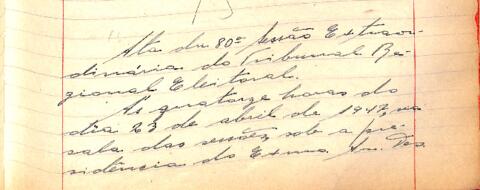 Ata da 80ª Sessão Extraor-
dinária do Tribunal Re-
gional Eleitoral.
Ás quatorze horas do
dia 23 de abril de 1947, na
sala das sessões, sob a pre-
sidência do Exmo. Snr. Des.